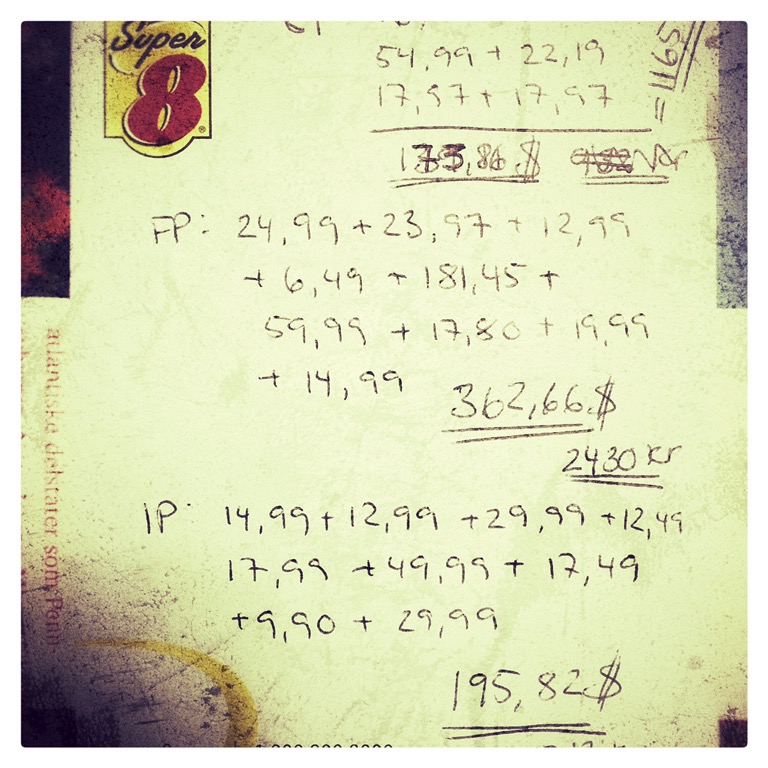 Super
8
54,99 + 22,19
17,97 + 17,97
= 1165
173,86 $
FP: 24,99 + 23,97 + 12,99
+ 6,49 + 181,45 +
59,99 + 17,80 + 19,99
+ 14,99
362,66 $
2430 kr
IP: 14,99 + 12,99 + 29,99 + 12,49
17,99 + 49,99 + 17,49
+ 9,90 + 29,99
195,82 $
atlantiske delstater som Penn